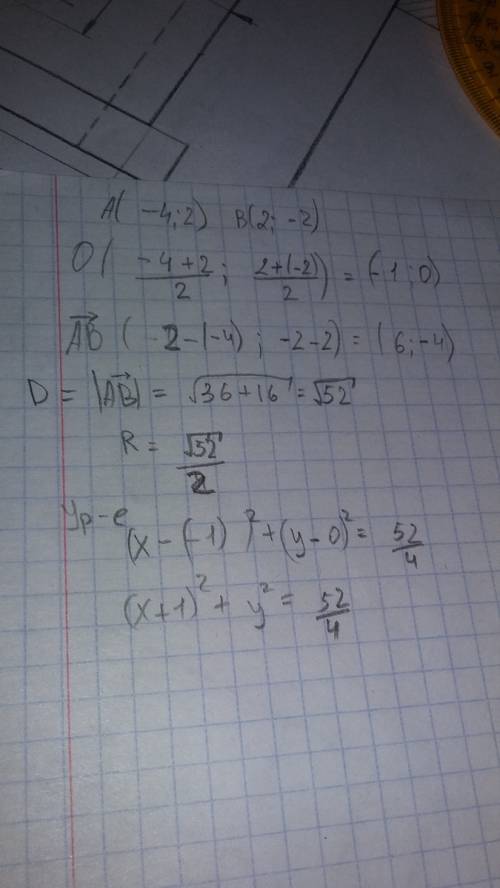 A( -4;2) B(2; -2)
O( \frac{-4+2}{2}; \frac{2+(-2)}{2}) = (-1;0)
\overrightarrow{AB} ( 2-(-4); -2-2) = (6;-4)
D = |\overrightarrow{AB}| = \sqrt{36+16} = \sqrt{52}
R = \frac{\sqrt{52}}{2}
Ур-е
(x-(-1))^2+(y-0)^2 = \frac{52}{4}
(x+1)^2 + y^2 = \frac{52}{4}